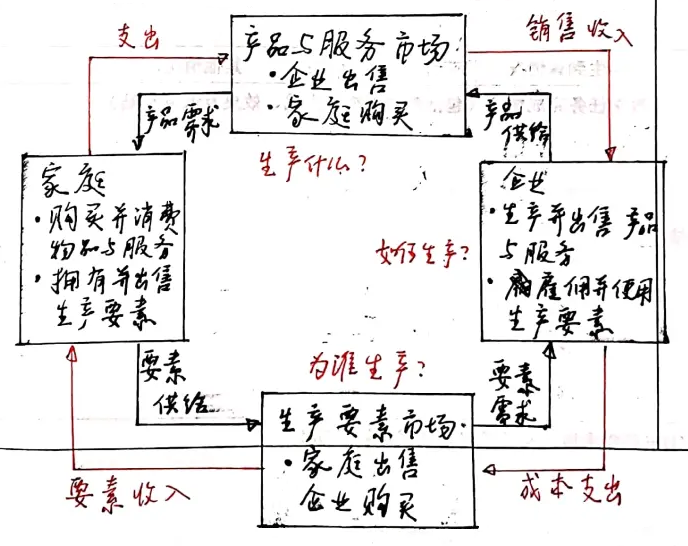 支出
产品与服务市场
·企业出售
·家庭购买
销售收入
产品需求
产品
供给
生产什么?
家庭
·购买并消费
物品与服务
·拥有并出售
生产要素
企业
·生产并出售产品
与服务
·雇佣并使用
生产要素
如何生产?
要素
供给
为谁生产?
要素
需求
生产要素市场
·家庭出售
企业购买
要素收入
成本支出